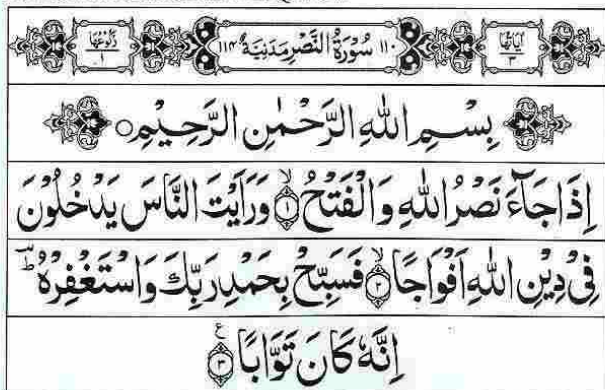 رُكُوْعُهَا ١ ١١٠ سُوْرَةُ النَّصْرِ مَدَنِيَّةٌ ١١٤ اٰيَاتُهَا ٣
بِسْمِ اللهِ الرَّحْمٰنِ الرَّحِيْمِ ○
اِذَا جَآءَ نَصْرُ اللهِ وَالْفَتْحُ ۙ ١ وَرَاَيْتَ النَّاسَ يَدْخُلُوْنَ
فِيْ دِيْنِ اللهِ اَفْوَاجًا ۙ ٢ فَسَبِّحْ بِحَمْدِ رَبِّكَ وَاسْتَغْفِرْهُ ؕ
اِنَّهٗ كَانَ تَوَّابًا ٣ ع